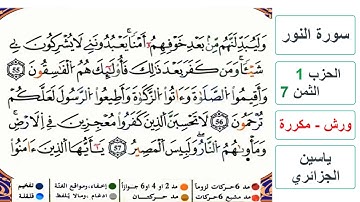 وَلَيُبَدِّلَنَّهُم مِّنۢ بَعْدِ خَوْفِهِمُۥٓ أَمْناًۖ يَعْبُدُونَنِے لَا يُشْرِكُونَ بِے
شَيْـٔاًۖ وَمَن كَفَرَ بَعْدَ ذَٰلِكَ فَأُوْلَٰٓئِكَ هُمُ الْفَٰسِقُونَ 55
وَأَقِيمُواْ الصَّلَوٰةَ وَءَاتُواْ الزَّكَوٰةَ وَأَطِيعُواْ الرَّسُولَ لَعَلَّكُمْ
تُرْحَمُونَ 56 لَا تَحْسِبَنَّ الَّذِينَ كَفَرُواْ مُعْجِزِينَ فِے الْأَرْضِۖ
وَمَأْوَيٰهُمُ النَّارُۖ وَلَبِيسَ الْمَصِيرُ 57 يَٰٓأَيُّهَا الَّذِينَ ءَامَنُواْ
سورة النور
الحزب 1
الثمن 7
ورش - مكررة
ياسين
الجزائري
مد 6 حركات لزوماً
مد 2 او 4 او 6 جوازاً
إخفاء، ومواقع الغنّة
تفخيم
مد مشبع 6 حركات
مد حركتان
إدغام، وما لا يلفظ
قلقلة